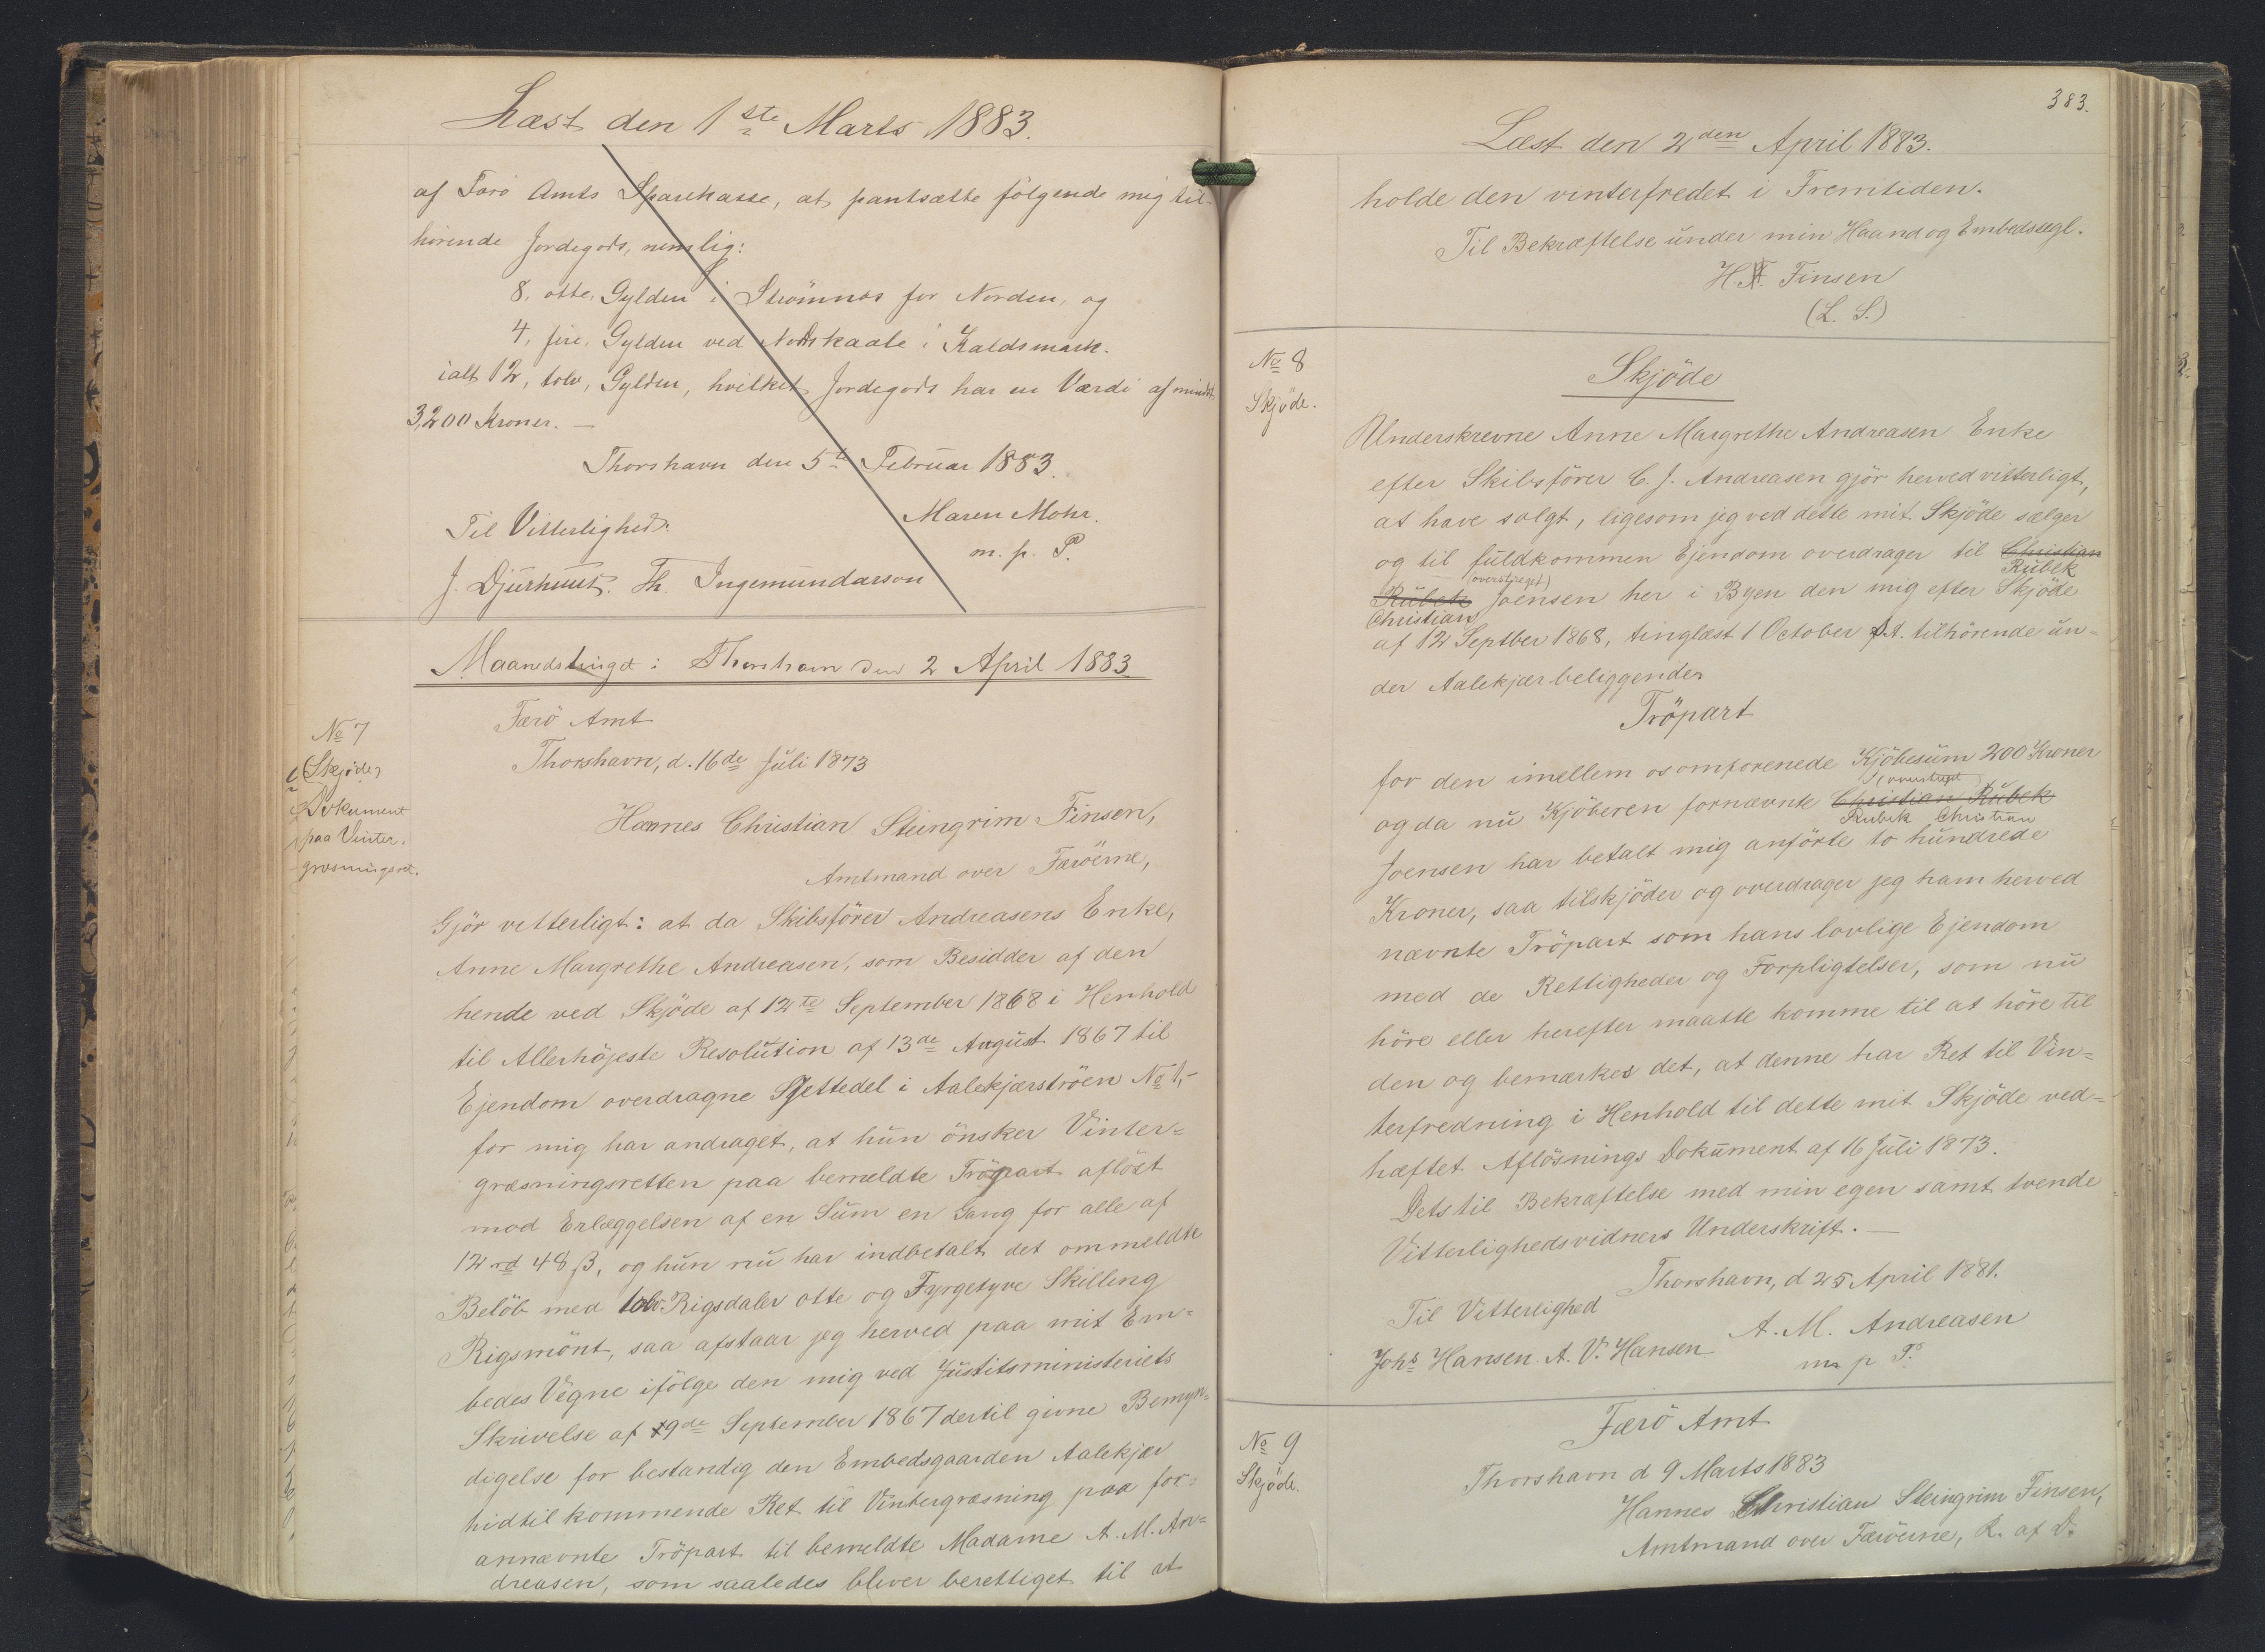 Læst den 1ste Marts 1883.
af Færö Amts Sparekasse, at pantsætte fölgende mig til-
hörende Jordegods, nemlig:
8, otte, Gylden i Strömnæs for Norden, og
4, fire, Gylden ved Nordskaale i Kaldsmark.
ialt 12, tolv, Gylden, hvilket Jordegods har en Værdi af mindst
3,200 Kroner. —
Thorshavn den 5te Februar 1883.
Maren Mohr.
m. p. P.
Til Vitterlighed:
J. Djurhuus. Th. Ingemundarson
Maanedstinget i Thorshavn den 2 April 1883.
No 7
Skjöde,
Dokument
paa Vinter-
græsningsret.
Færö Amt
Thorshavn, d. 16de Juli 1873
Hannes Christian Steingrim Finsen,
Amtmand over Færöerne,
Gjör vitterligt: at da Skibsförer Andreasens Enke,
Anne Margrethe Andreasen, som Besidder af den
hende ved Skjöde af 12te September 1868 i Henhold
til Allerhöjeste Resolution af 13de August 1867 til
Ejendom overdragne Sjettedel i Aalekjærströen No 1,-
for mig har andraget, at hun önsker Vinter=
græsningsretten paa bemeldte Tröpart aflöst
mod Erlæggelsen af en Sum en Gang for alle af
12 rd 48 ß, og hun nu har indbetalt det ommeldte
Belöb med tolv Rigsdaler otte og Fyrgetyve Skilling
Rigsmönt, saa afstaar jeg herved paa mit Em=
bedes Vegne ifölge den mig ved Justitsministeriets
Skrivelse af 19de September 1867 dertil givne Bemyn=
digelse for bestandig den Embedsgaarden Aalekjær
hidtil kommende Ret til Vintergræsning paa for=
annævnte Tröpart til bemeldte Madame A. M. An=
dreasen, som saaledes bliver berettiget til at
383.
Læst den 2den April 1883.
holde den vinterfredet i Fremtiden.
Til Bekræftelse under min Haand og Embedssegl.
H. Finsen
(L. S.)
No 8
Skjöde.
Skjöde
Underskrevne Anne Margrethe Andreasen Enke
efter Skibsförer C. J. Andreasen gjör herved vitterligt,
at have solgt, ligesom jeg ved dette mit Skjöde sælger
og til fuldkommen Ejendom overdrager til Christian
Rubek
(overstreget)
Rubek Joensen her i Byen den mig efter Skjöde
Christian
af 12 Septber 1868, tinglæst 1 October s. A. tilhörende un=
der Aalekjær beliggende
Tröpart
for den imellem os omforenede Kjöbesum 200 Kroner
(overstreget)
og da nu Kjöberen fornævnte Christian Rubek
Rubek Christian
Joensen har betalt mig anförte to hundrede
Kroner, saa tilskjöder og overdrager jeg ham herved
nævnte Tröpart som hans lovlige Ejendom
med de Rettigheder og Forpligtelser, som nu
höre eller herefter maatte komme til at höre til
den og bemærkes det, at denne har Ret til Vin=
terfredning i Henhold til dette mit Skjöde ved=
hæftet Aflösnings Dokument af 16 Juli 1873.
Dets til Bekræftelse med min egen samt tvende
Vitterlighedsvidners Underskrift. —
Thorshavn, d 25 April 1881.
Til Vitterlighed
A. M. Andreasen
Johs Hansen. A. V. Hansen
m p P.
No 9
Skjöde.
Færö Amt
Thorshavn d 9 Marts 1883
Hannes Christian Steingrim Finsen,
Amtmand over Færöerne, R. af D.